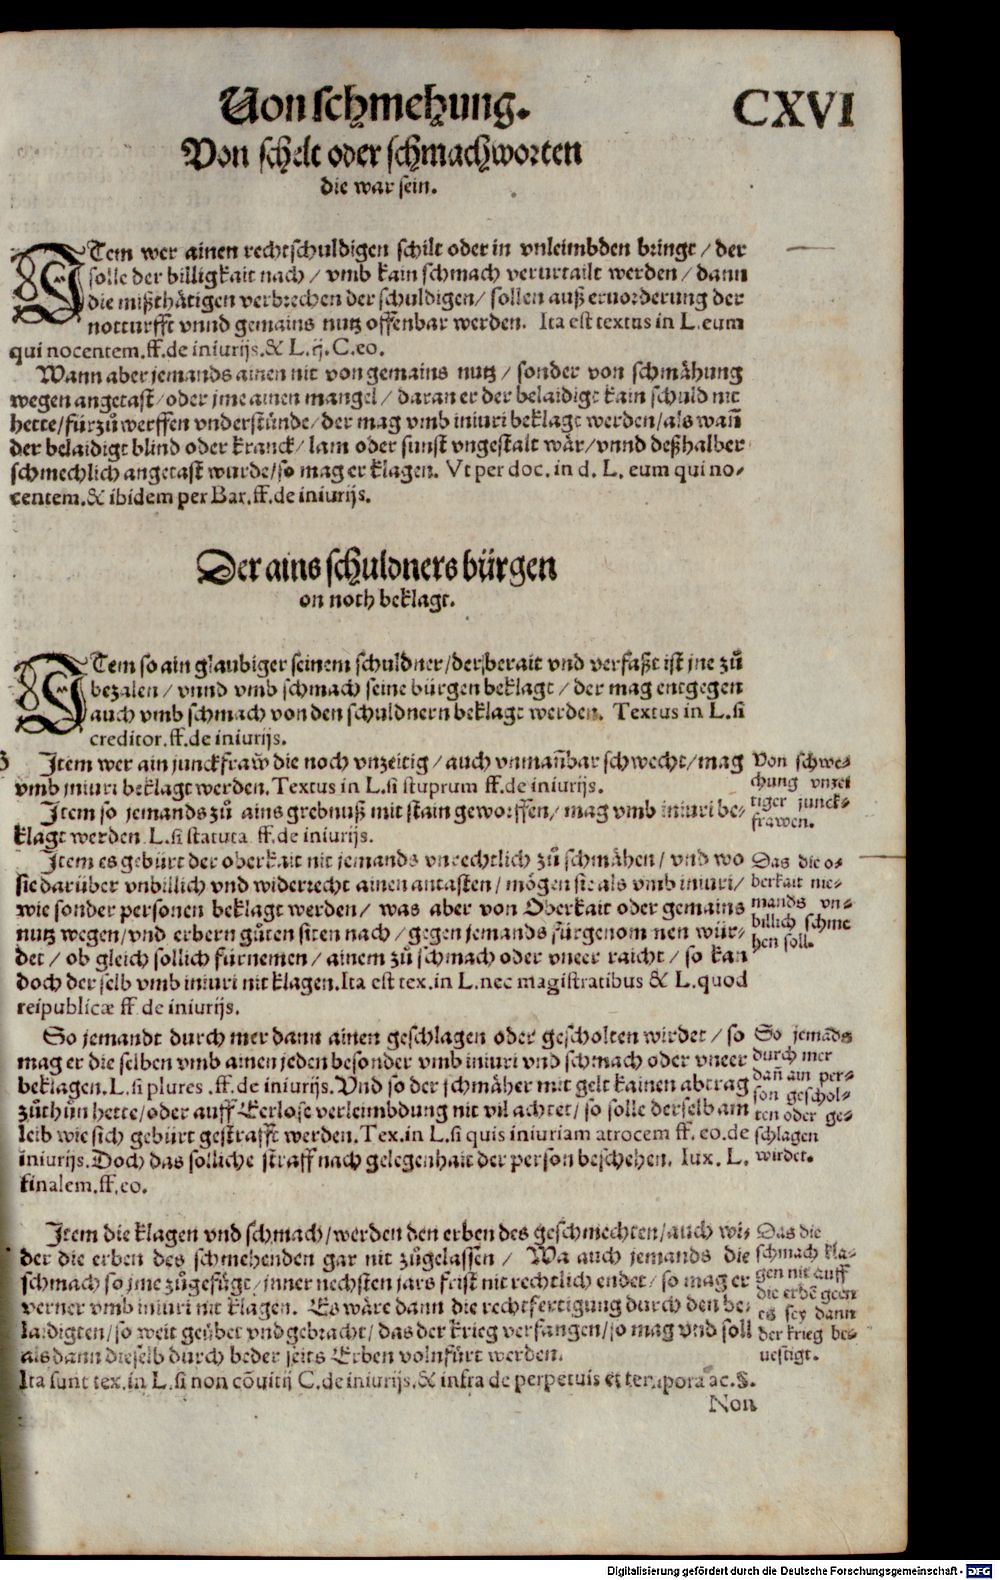 Von schmehung.
CXVI
Von schelt oder schmachworten
die war sein.
ITem wer ainen rechtschuldigen schilt oder in vnleimbden bringt / der
solle der billigkait nach / vmb kain schmach verurtailt werden / dann
die mißthätigen verbrechen der schuldigen / sollen auß eruorderung der
notturfft vnnd gemains nutz offenbar werden. Ita est textus in L. eum
qui nocentem. ff. de iniurijs. & L. ij. C. eo.
Wann aber jemands ainen nit von gemains nutz / sonder von schmähung
wegen angetast / oder jme ainen mangel / daran er der belaidigt kain schuld nit
hette / fürzůwerffen vnderstünde / der mag vmb iniuri beklagt werden / als wañ
der belaidigt blind oder kranck / lam oder sunst vngestalt wär / vnnd deßhalber
schmechlich angetast wurde / so mag er klagen. Vt per doc. in d. L. eum qui no-
centem. & ibidem per Bar. ff. de iniurijs.
Der ains schuldners bürgen
on noth beklagt.
ITem so ain glaubiger seinem schuldner / der berait vnd verfaßt ist jne zů
bezalen / vnnd vmb schmach seine bürgen beklagt / der mag entgegen
auch vmb schmach von den schuldnern beklagt werden. Textus in L. si
creditor. ff. de iniurijs.
Item wer ain junckfraw̃ die noch vnzeitig / auch vnmañbar schwecht / mag
vmb iniuri beklagt werden. Textus in L. si stuprum ff. de iniurijs.
Von schwe-
chung vnzei
tiger junck-
frawen.
Item so jemands zů ains grebnuß mit stain geworffen / mag vmb iniuri be-
klagt werden L. si statuta ff. de iniurijs.
Item es gebürt der oberkait nit jemands vnrechtlich zů schmähen / vnd wo
sie darüber vnbillich vnd widerrecht ainen antasten / mögen sie als vmb iniuri /
wie sonder personen beklagt werden / was aber von Oberkait oder gemains
nutz wegen / vnd erbern gůten siten nach / gegen jemands fürgenom nen wür-
det / ob gleich sollich fürnemen / ainem zů schmach oder vneer raicht / so kan
doch der selb vmb iniuri nit klagen. Ita est tex. in L. nec magistratibus & L. quod
reipublicæ ff de iniurijs.
Das die o-
berkait nie-
mands vn-
billich schme
hen soll.
So jemandt durch mer dann ainen geschlagen oder gescholten wirdet / so
mag er die selben vmb ainen jeden besonder vmb iniuri vnd schmach oder vneer
beklagen. L. si plures. ff. de iniurijs. Vnd so der schmäher mit gelt kainen abtrag
zůthůn hette / oder auff Eerlose verleimbdung nit vil achtet / so solle derselb am
leib wie sich gebürt gestrafft werden. Tex. in L. si quis iniuriam atrocem ff. eo. de
iniurijs. Doch das solliche straff nach gelegenhait der person beschehen. Iux. L.
finalem. ff. eo.
So jemãds
durch mer
dañ ain per-
son geschol-
ten oder ge-
schlagen
wirdet.
Item die klagen vnd schmach / werden den erben des geschmechten / auch wi-
der die erben des schmehenden gar nit zůgelassen / Wa auch jemands die
schmach so jme zůgefügt / inner nechsten jars frist nit rechtlich endet / so mag er
verner vmb iniuri nit klagen. Es wäre dann die rechtfertigung durch den be-
laidigten / so weit geübet vnd gebracht / das der krieg verfangen / so mag vnd soll
als dann dieselb durch beder seits Erben volnfürt werden.
Ita sunt tex. in L. si non cõuitij C. de iniurijs. & infra de perpetuis et tempora ac. §.
Das die
schmach kla-
gen nit auff
die erbẽ geen
es sey dann
der krieg be-
uestigt.
Non
Digitalisierung gefördert durch die Deutsche Forschungsgemeinschaft - DFG